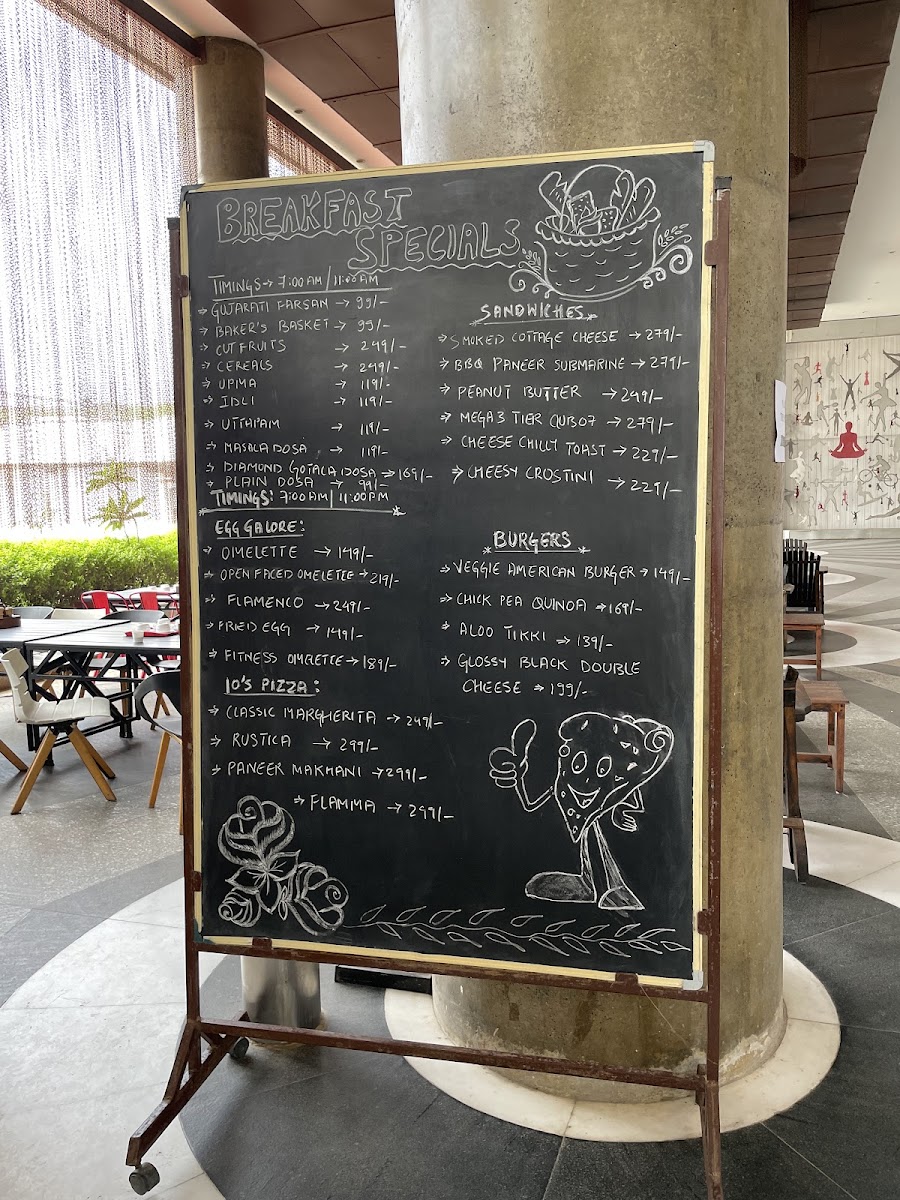 BREAKFAST
SPECIALS
TIMINGS → 7:00 AM / 11:00 AM
⇒ GUJARATI FARSAN → 99/-
⇒ BAKER'S BASKET → 99/-
⇒ CUT FRUITS → 249/-
⇒ CEREALS → 249/-
⇒ UPMA → 119/-
⇒ IDLI → 119/-
⇒ UTTAPAM → 119/-
⇒ MASALA DOSA → 119/-
⇒ DIAMOND GOTALA DOSA ⇒ 169/-
⇒ PLAIN DOSA → 99/-
TIMINGS: 7:00 AM / 11:00 PM
EGG GALORE:
⇒ OMELETTE → 149/-
⇒ OPEN FACED OMELETTE → 219/-
⇒ FLAMENCO → 249/-
⇒ FRIED EGG → 149/-
⇒ FITNESS OMELETTE → 189/-
10'S PIZZA:
⇒ CLASSIC MARGHERITA → 249/-
⇒ RUSTICA → 299/-
⇒ PANEER MAKHANI → 299/-
⇒ FLAMMA → 299/-
SANDWICHES
⇒ SMOKED COTTAGE CHEESE → 279/-
⇒ BBQ PANEER SUBMARINE → 279/-
⇒ PEANUT BUTTER → 249/-
⇒ MEGA 3 TIER → 279/-
⇒ CHEESE CHILLY TOAST → 229/-
⇒ CHEESY CROSTINI → 229/-
* BURGERS *
⇒ VEGGIE AMERICAN BURGER → 149/-
⇒ CHICK PEA QUINOA ⇒ 169/-
⇒ ALOO TIKKI ⇒ 139/-
⇒ GLOSSY BLACK DOUBLE
CHEESE ⇒ 199/-